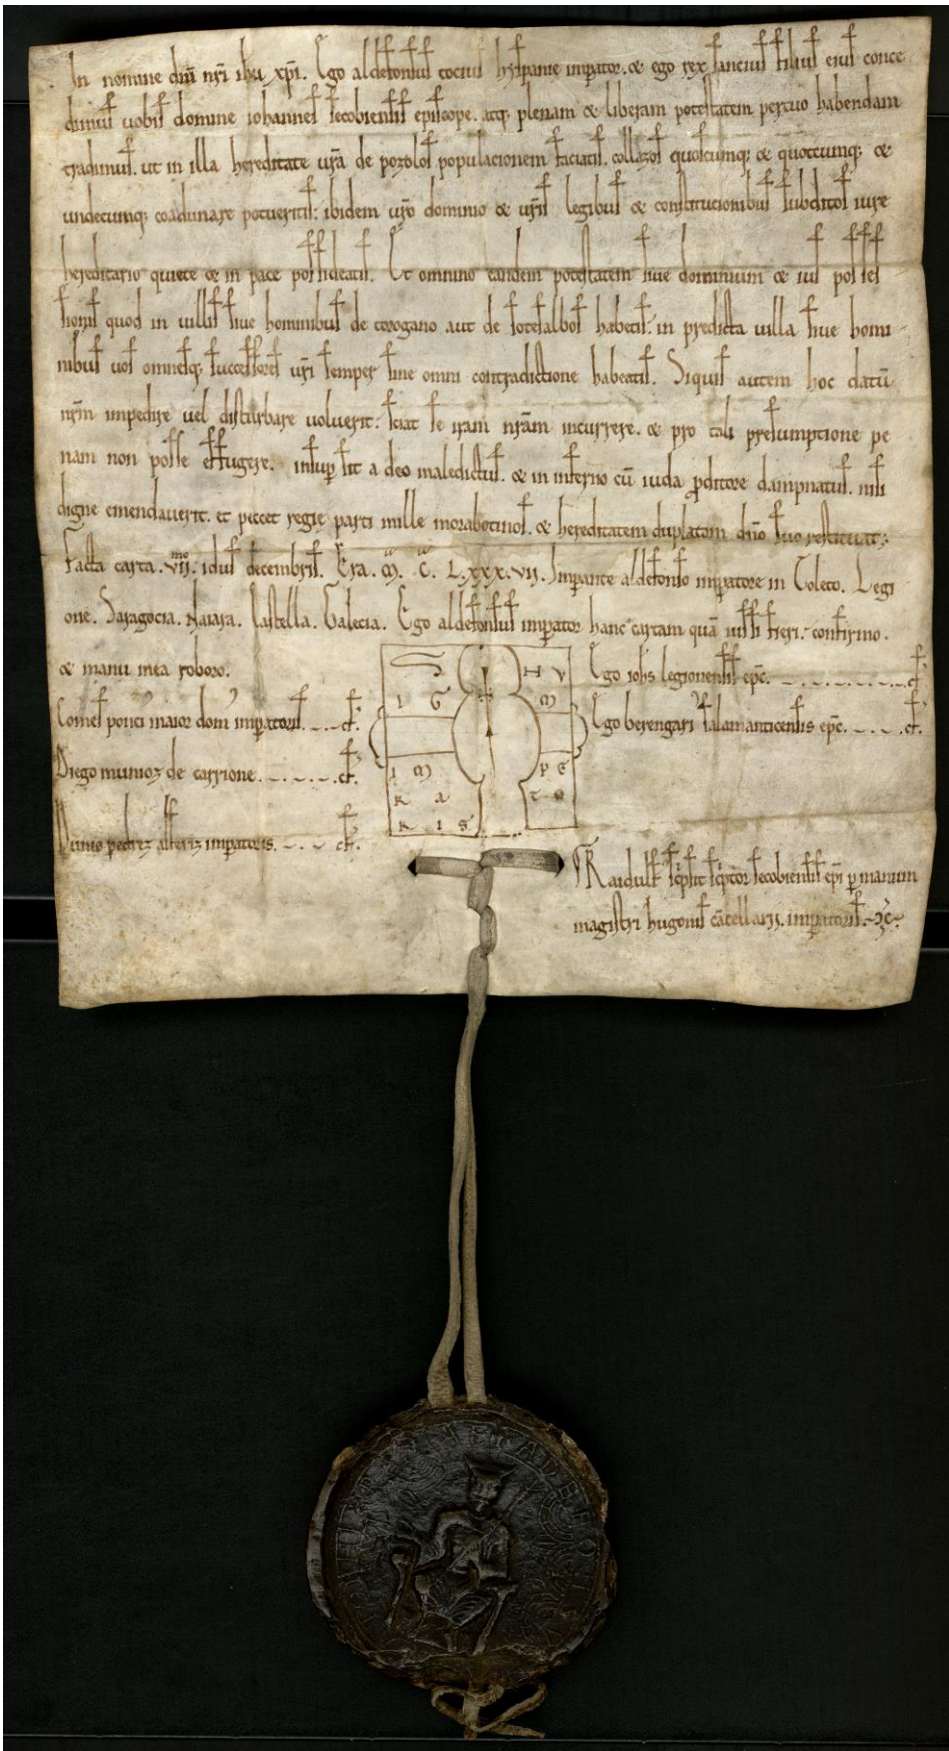 In nomine dñi nr̃i ihu xp̃i. Ego aldefonsus tocius hyspanie imp̃ator. & ego rex sancius filius eius conce
dimus uobis domine iohannes secobiensis episcope. atq; plenam & liberam potestatem perpetuo habendam
tradimus. ut in illa hereditate ur̃a de pozolos populacionem faciatis. collazos quoscumq; & quotcumq; &
undecumq; coadunare potueritis: ibidem ur̃o dominio & ur̃is legibus & constitucionibus subditos iure
hereditario quiete & in pace possideatis. Et omnino eandem potestatem siue dominium & ius posses
sionis quod in uillis siue hominibus de corogano aut de sotosalbos habetis: in predicta uilla siue homi
nibus uos omnesq; successores ur̃i semper sine omni contradictione habeatis. Siquis autem hoc datũ
nr̃m impedire uel disturbare uoluerit: sciat se iram nr̃am incurrere. & pro tali presumptione pe
nam non posse effugere. insup̱ sit a deo maledictus. & in inferno cũ iuda p̱ditore dampnatus. nisi
digne emendauerit. et pectet regie parti mille morabotinos. & hereditatem duplatam dñо suo restituat;
Facta carta. vii.mo idus decembris. Era. M. C. L.xxx.vii. Imp̱ante aldefonso imp̱atore in Toleto. Legi
one. Saragocia. Naiara. Castella. Galecia. Ego aldefonsus imp̱ator hanc cartam quã iussi fieri. confirmo.
& manu mea roboro.
Ego iohs legionensis ep̃c. cf.
Comes ponci maior dom imp̱atoris. cf.
Ego berengari salamanticensis ep̃c. cf.
Diego munioz de carrione. cf.
Nunio pedriz alferiz imp̱atoris. cf.
Raidulf sc̱psit sc̱ptor secobiensis ep̃i p̱ manum
magistri hugonis cãcellarii. imp̱atoris.